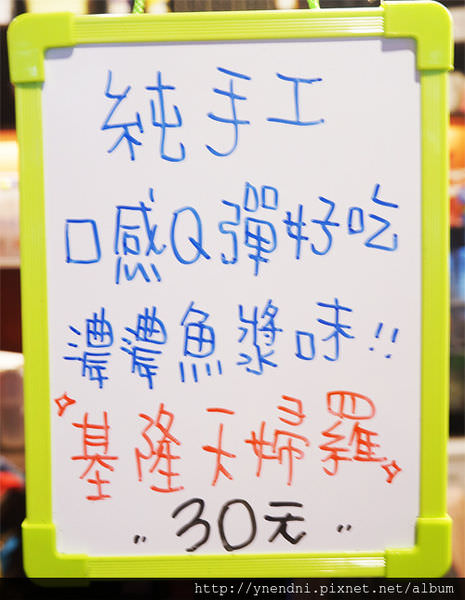 純手工
口感Q彈好吃
濃濃魚漿味!!
基隆天婦羅
"30元"
http://ynendni.pixnet.net/album